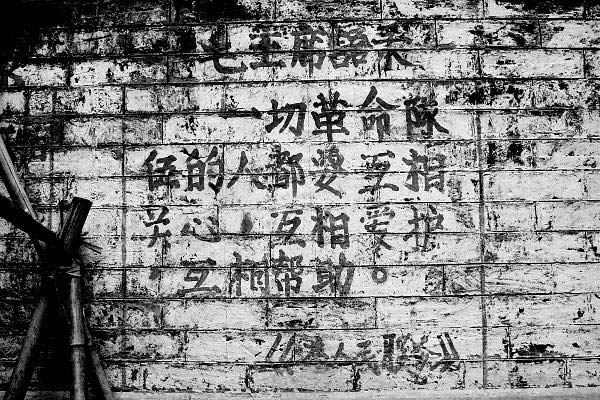 毛主席語录
一切革命隊
伍的人都要互相
关心，互相爱护
，互相帮助。
《为人民服务》